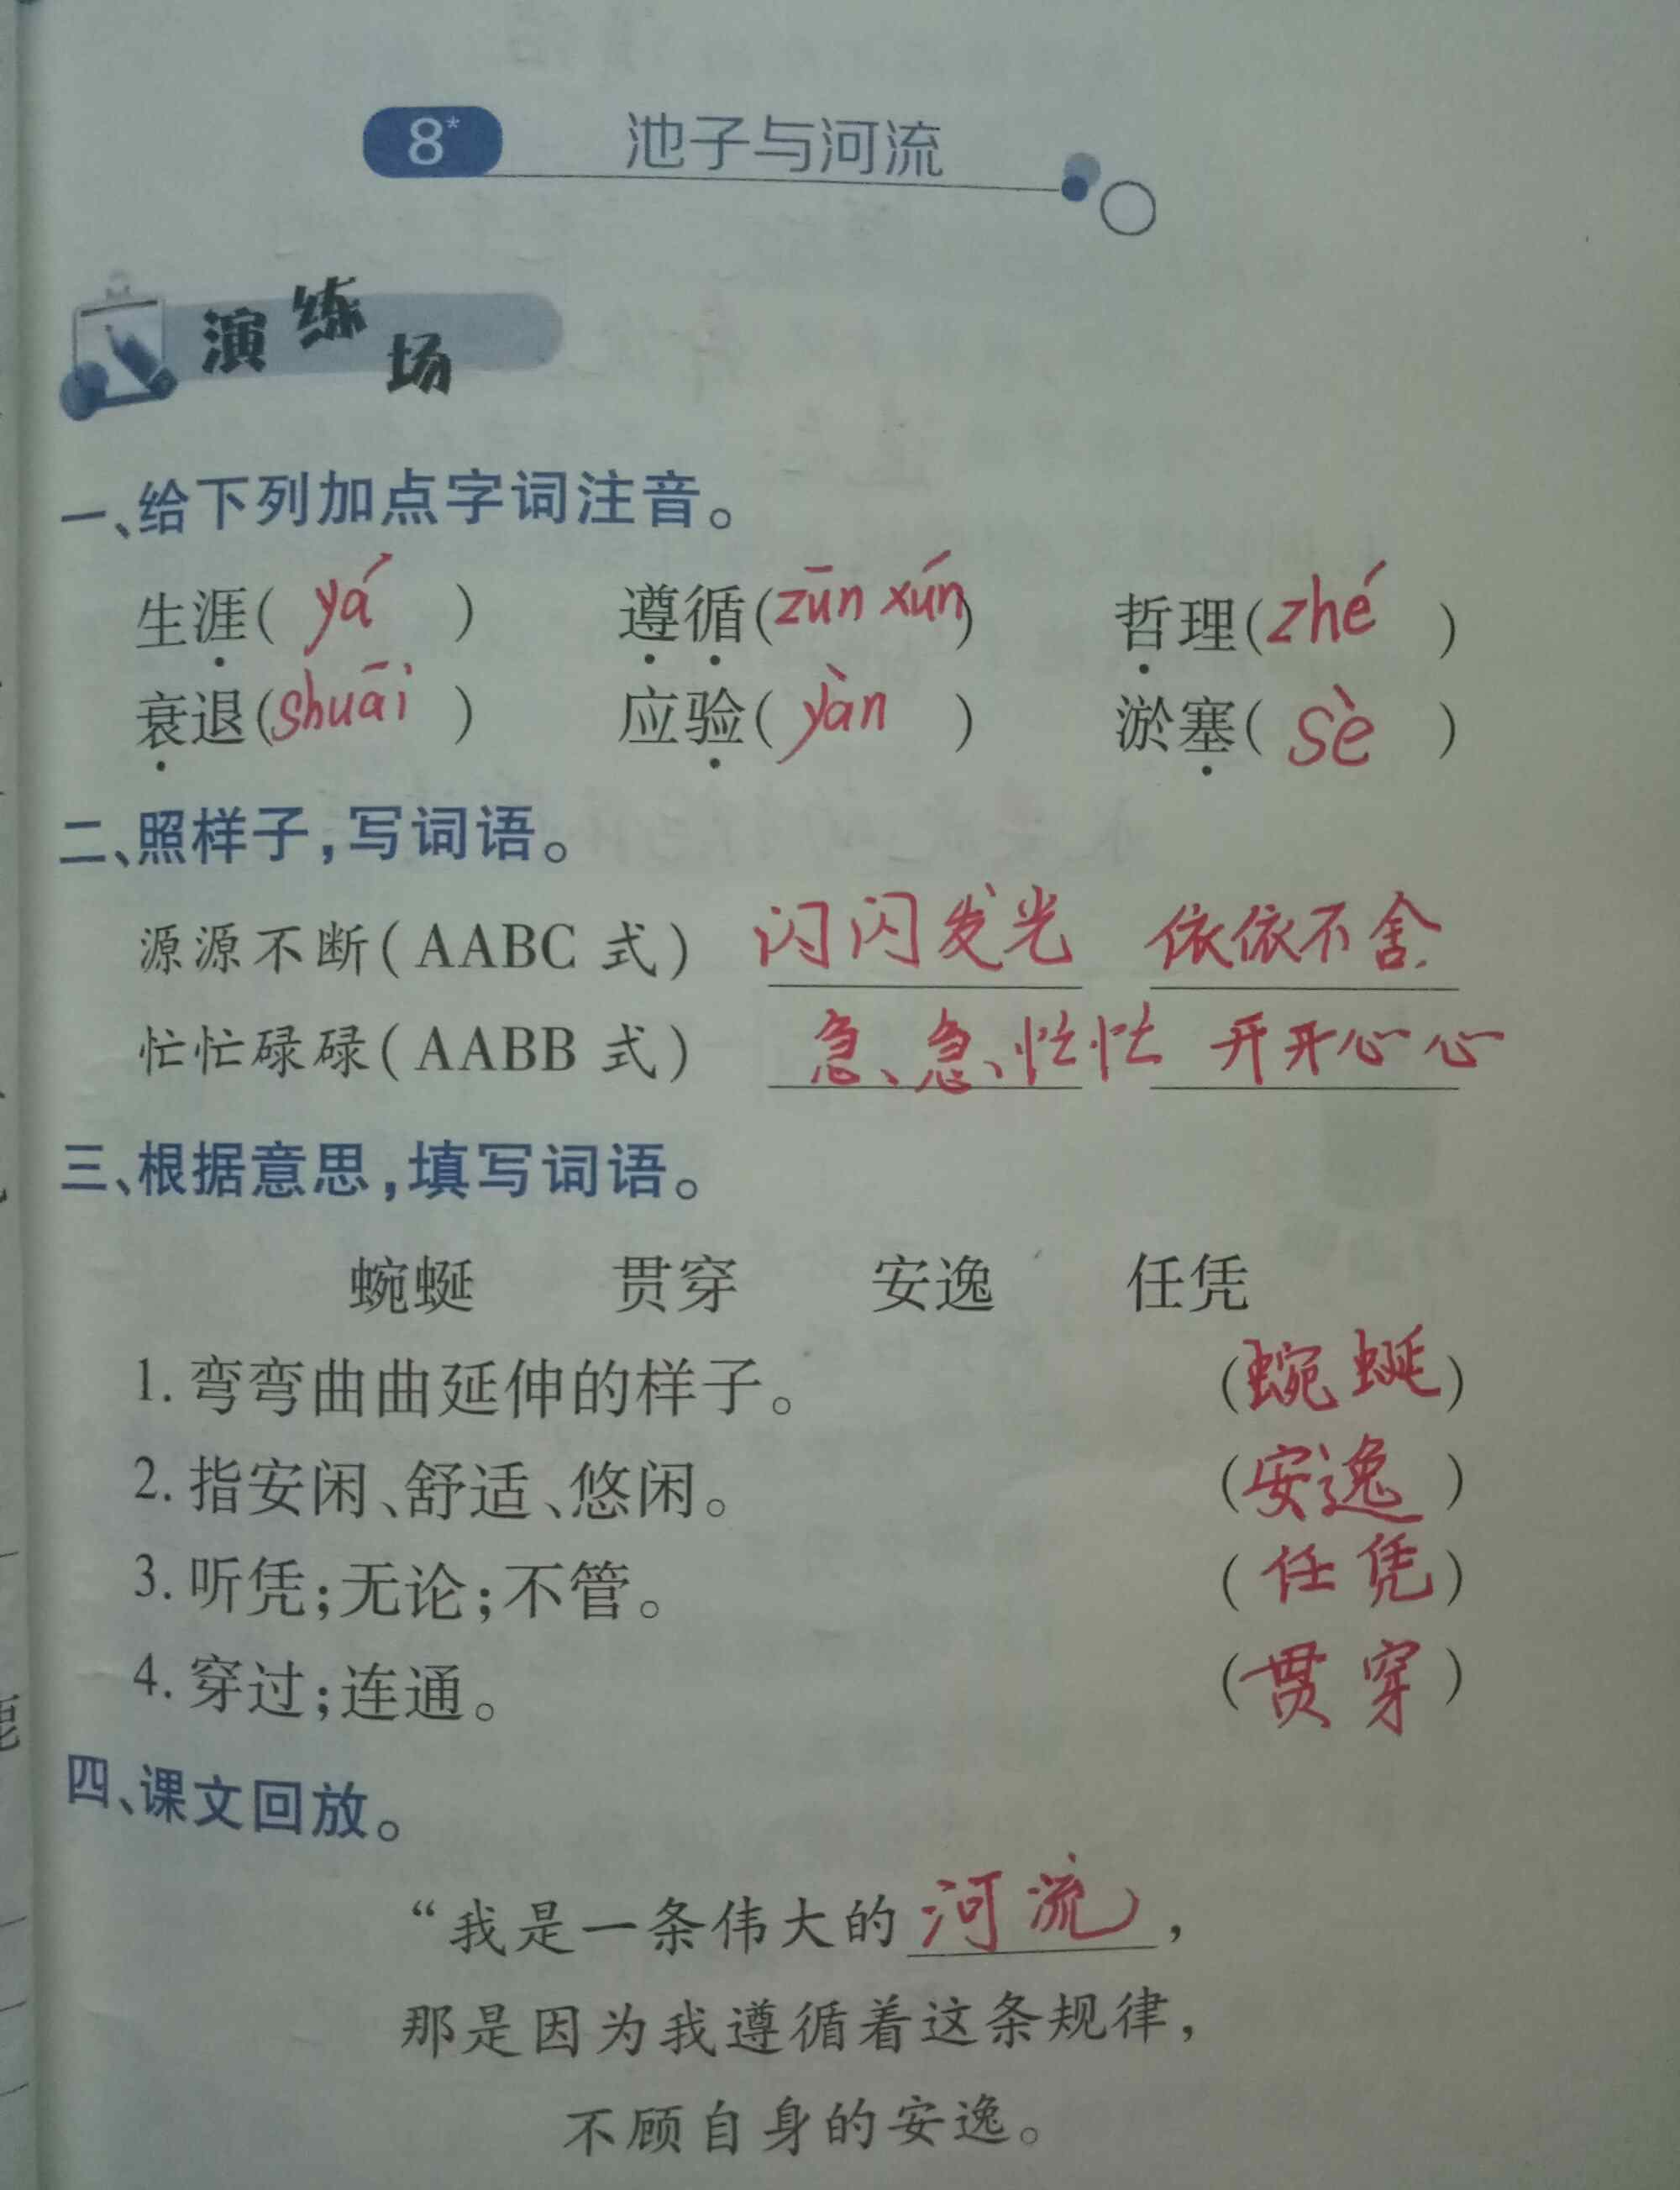 8* 池子与河流
演练场
一、给下列加点字词注音。
生涯( yá ) 遵循(zūn xún) 哲理(zhé )
衰退(shuāi ) 应验( yàn ) 淤塞( sè )
二、照样子,写词语。
源源不断(AABC 式) 闪闪发光 依依不舍.
忙忙碌碌(AABB 式) 急、急、忙忙 开开心心
三、根据意思,填写词语。
蜿蜒 贯穿 安逸 任凭
1. 弯弯曲曲延伸的样子。 (蜿蜒)
2. 指安闲、舒适、悠闲。 (安逸)
3. 听凭;无论;不管。 (任凭)
4. 穿过;连通。 (贯穿)
四、课文回放。
“我是一条伟大的河流,
那是因为我遵循着这条规律,
不顾自身的安逸。